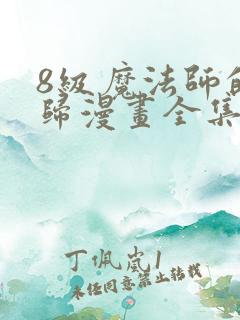 8級魔法師的
歸漫畫全集
丁佩嵐1
未经同意禁止转载